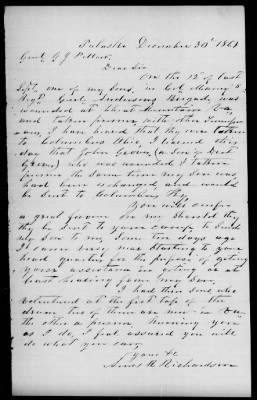 Pulaski Decembre 30th 1861
Genl G J Pillow,
Dear Sir
On the 12 of last
Sept one of my Sons, in Col Maney's
Regt Genl Anderson's Brigade, was
wounded at Cheat Mountain Va
and taken prisoner with other
I have heard that they were taken
to Columbus Ohio, I learned this
day that John Green, (a Son of
Green) who was wounded & taken
prisoner the same time my Son was
had been exchanged and would
be sent to Columbus Ky.
You will confer
a great favor on me should the
they be sent to your camp to send
my Son to me, some ten days ago
I came very near starting to your
head quarters for the purpose of geting
your assistance in geting or at
least hearing from my Son,
I had three Sons who
volunteered at the first tap of the
drum two of them are now in Va
the other a prisoner. Knowing you
as I do, I feel assured you will
do what you can,
Yours &c
Richardson